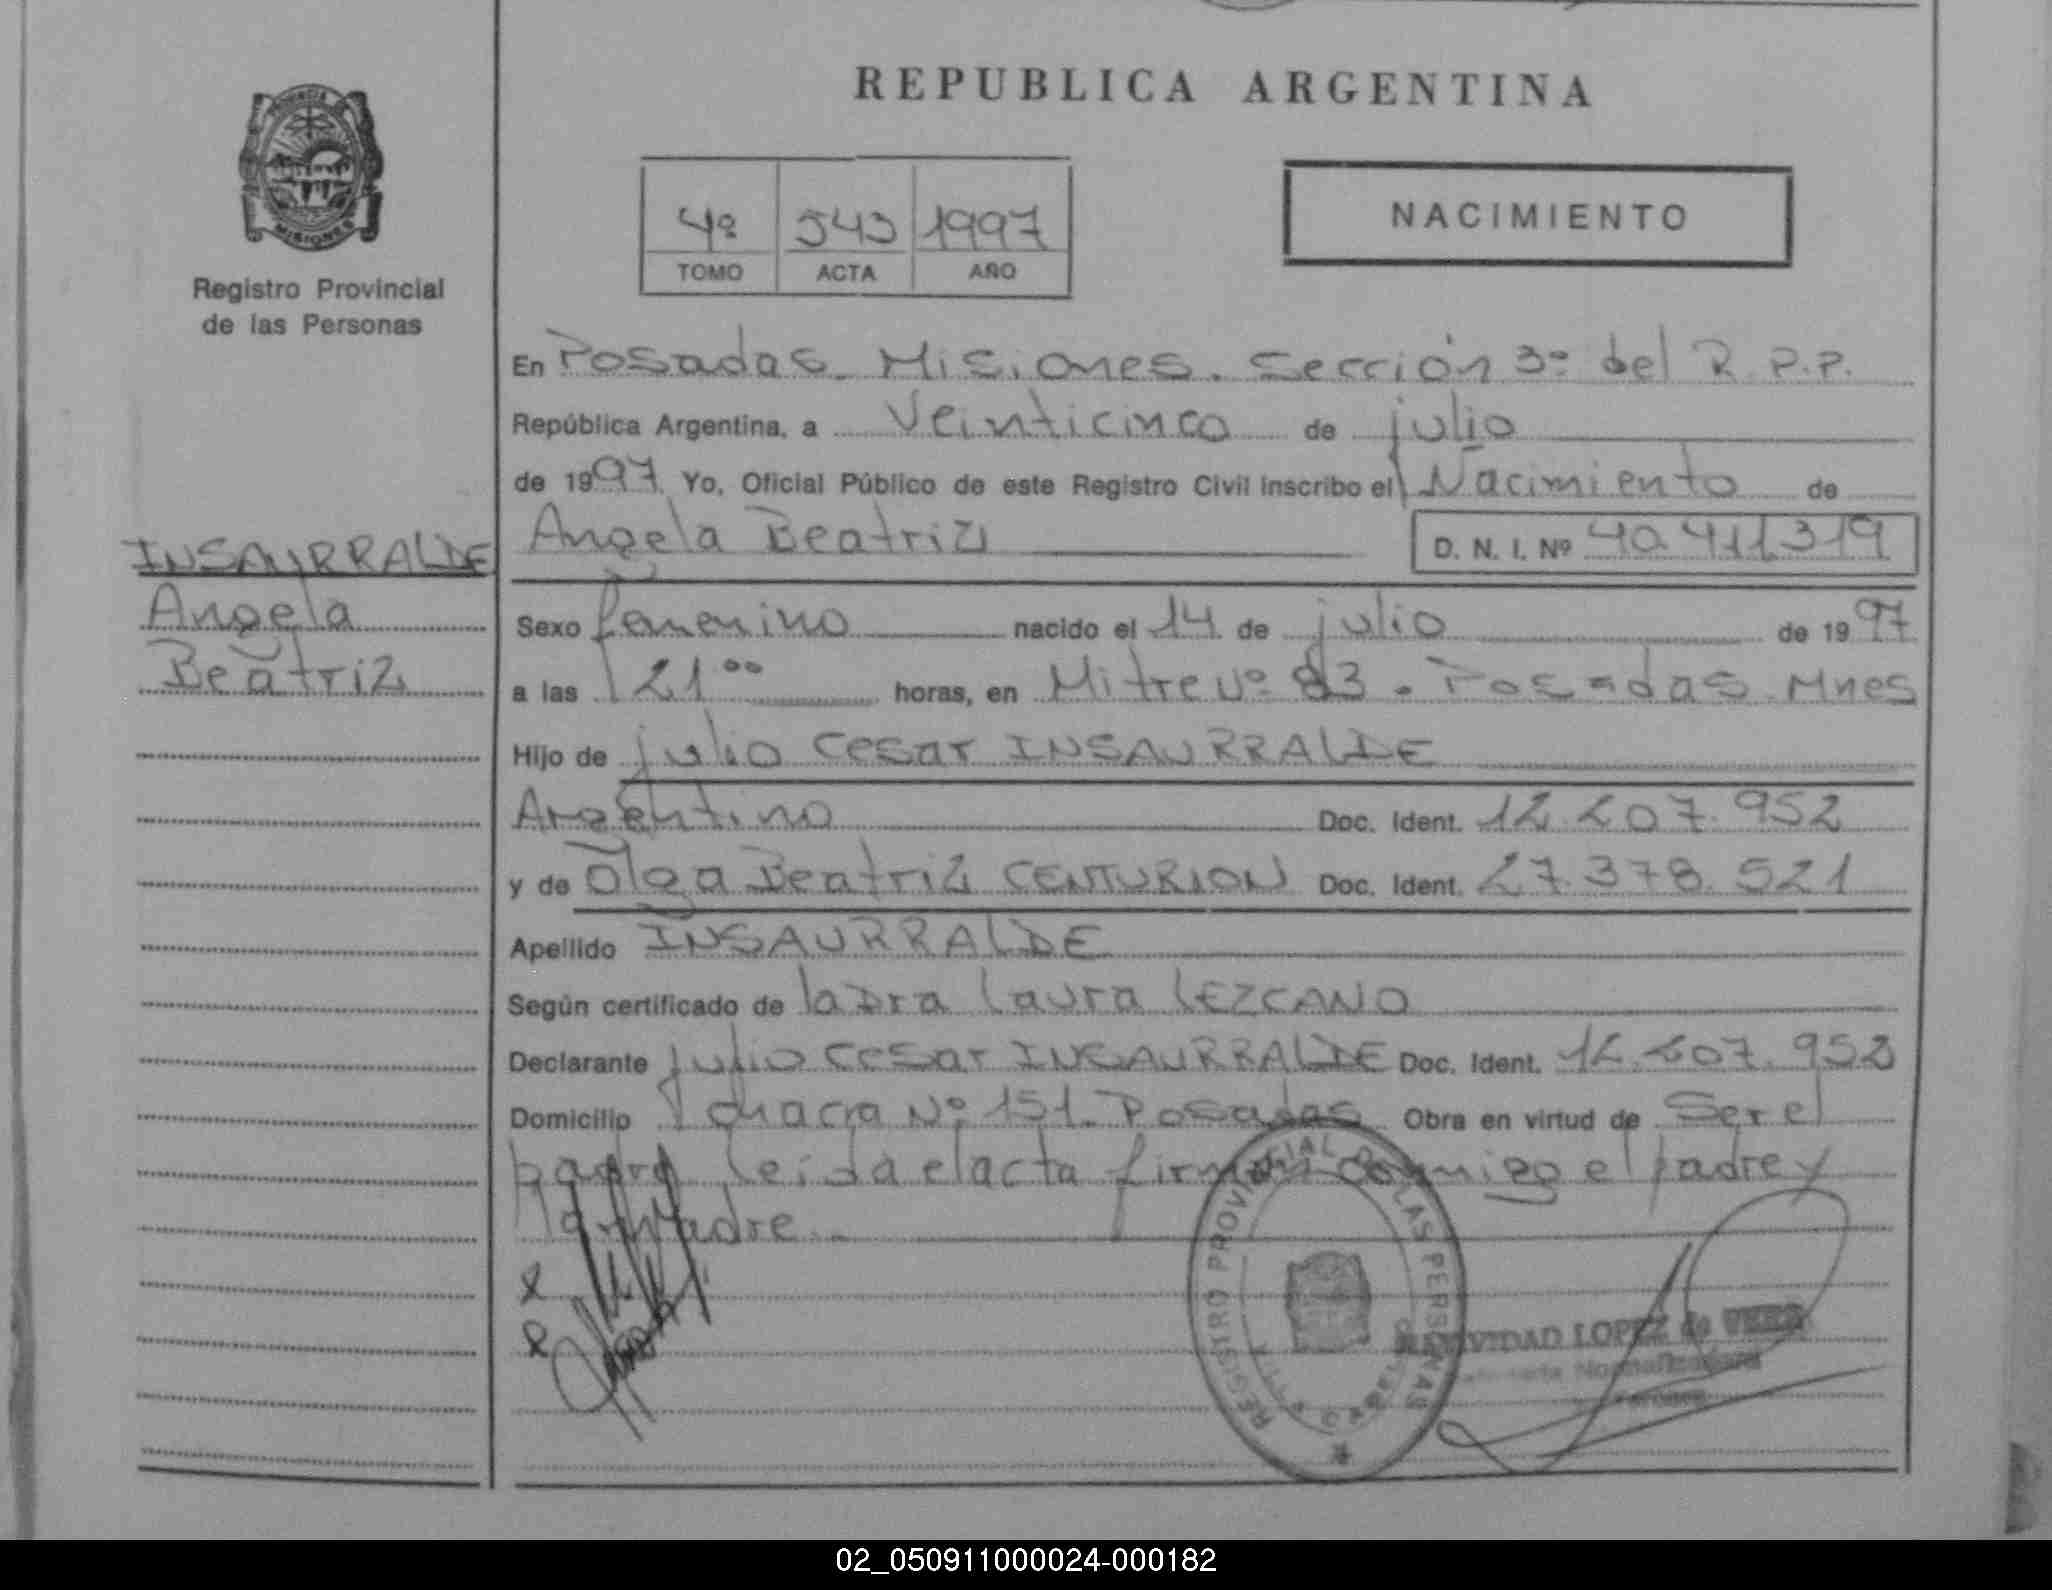 REPUBLICA ARGENTINA
PROVINCIA DE
MISIONES
Registro Provincial
de las Personas
4º 543 1997
TOMO ACTA AÑO
NACIMIENTO
En Posadas Misiones. Sección 3º del R.P.P.
República Argentina, a Veinticinco de julio
de 1997. Yo, Oficial Público de este Registro Civil inscribo el Nacimiento de
Angela Beatriz D. N. I. Nº 40.411.319
INSAURRALDE
Angela
Beatriz
Sexo femenino nacido el 14 de julio de 1997
a las 21⁰⁰ horas, en Mitre Nº 83. Posadas Mnes
Hijo de julio Cesar INSAURRALDE
Argentino Doc. Ident. 12.207.952
y de Olga Beatriz CENTURION Doc. Ident. 27.378.521
Apellido INSAURRALDE
Según certificado de la Dra Laura LEZCANO
Declarante julio Cesar INSAURRALDE Doc. Ident. 12.207.952
Domicilio chacra Nº 151. Posadas Obra en virtud de Ser el
padre leida el acta firman conmigo el padre y
la Madre.
REGISTRO PROVINCIAL DE LAS PERSONAS
NATIVIDAD LOPEZ de VERA
02_050911000024-000182